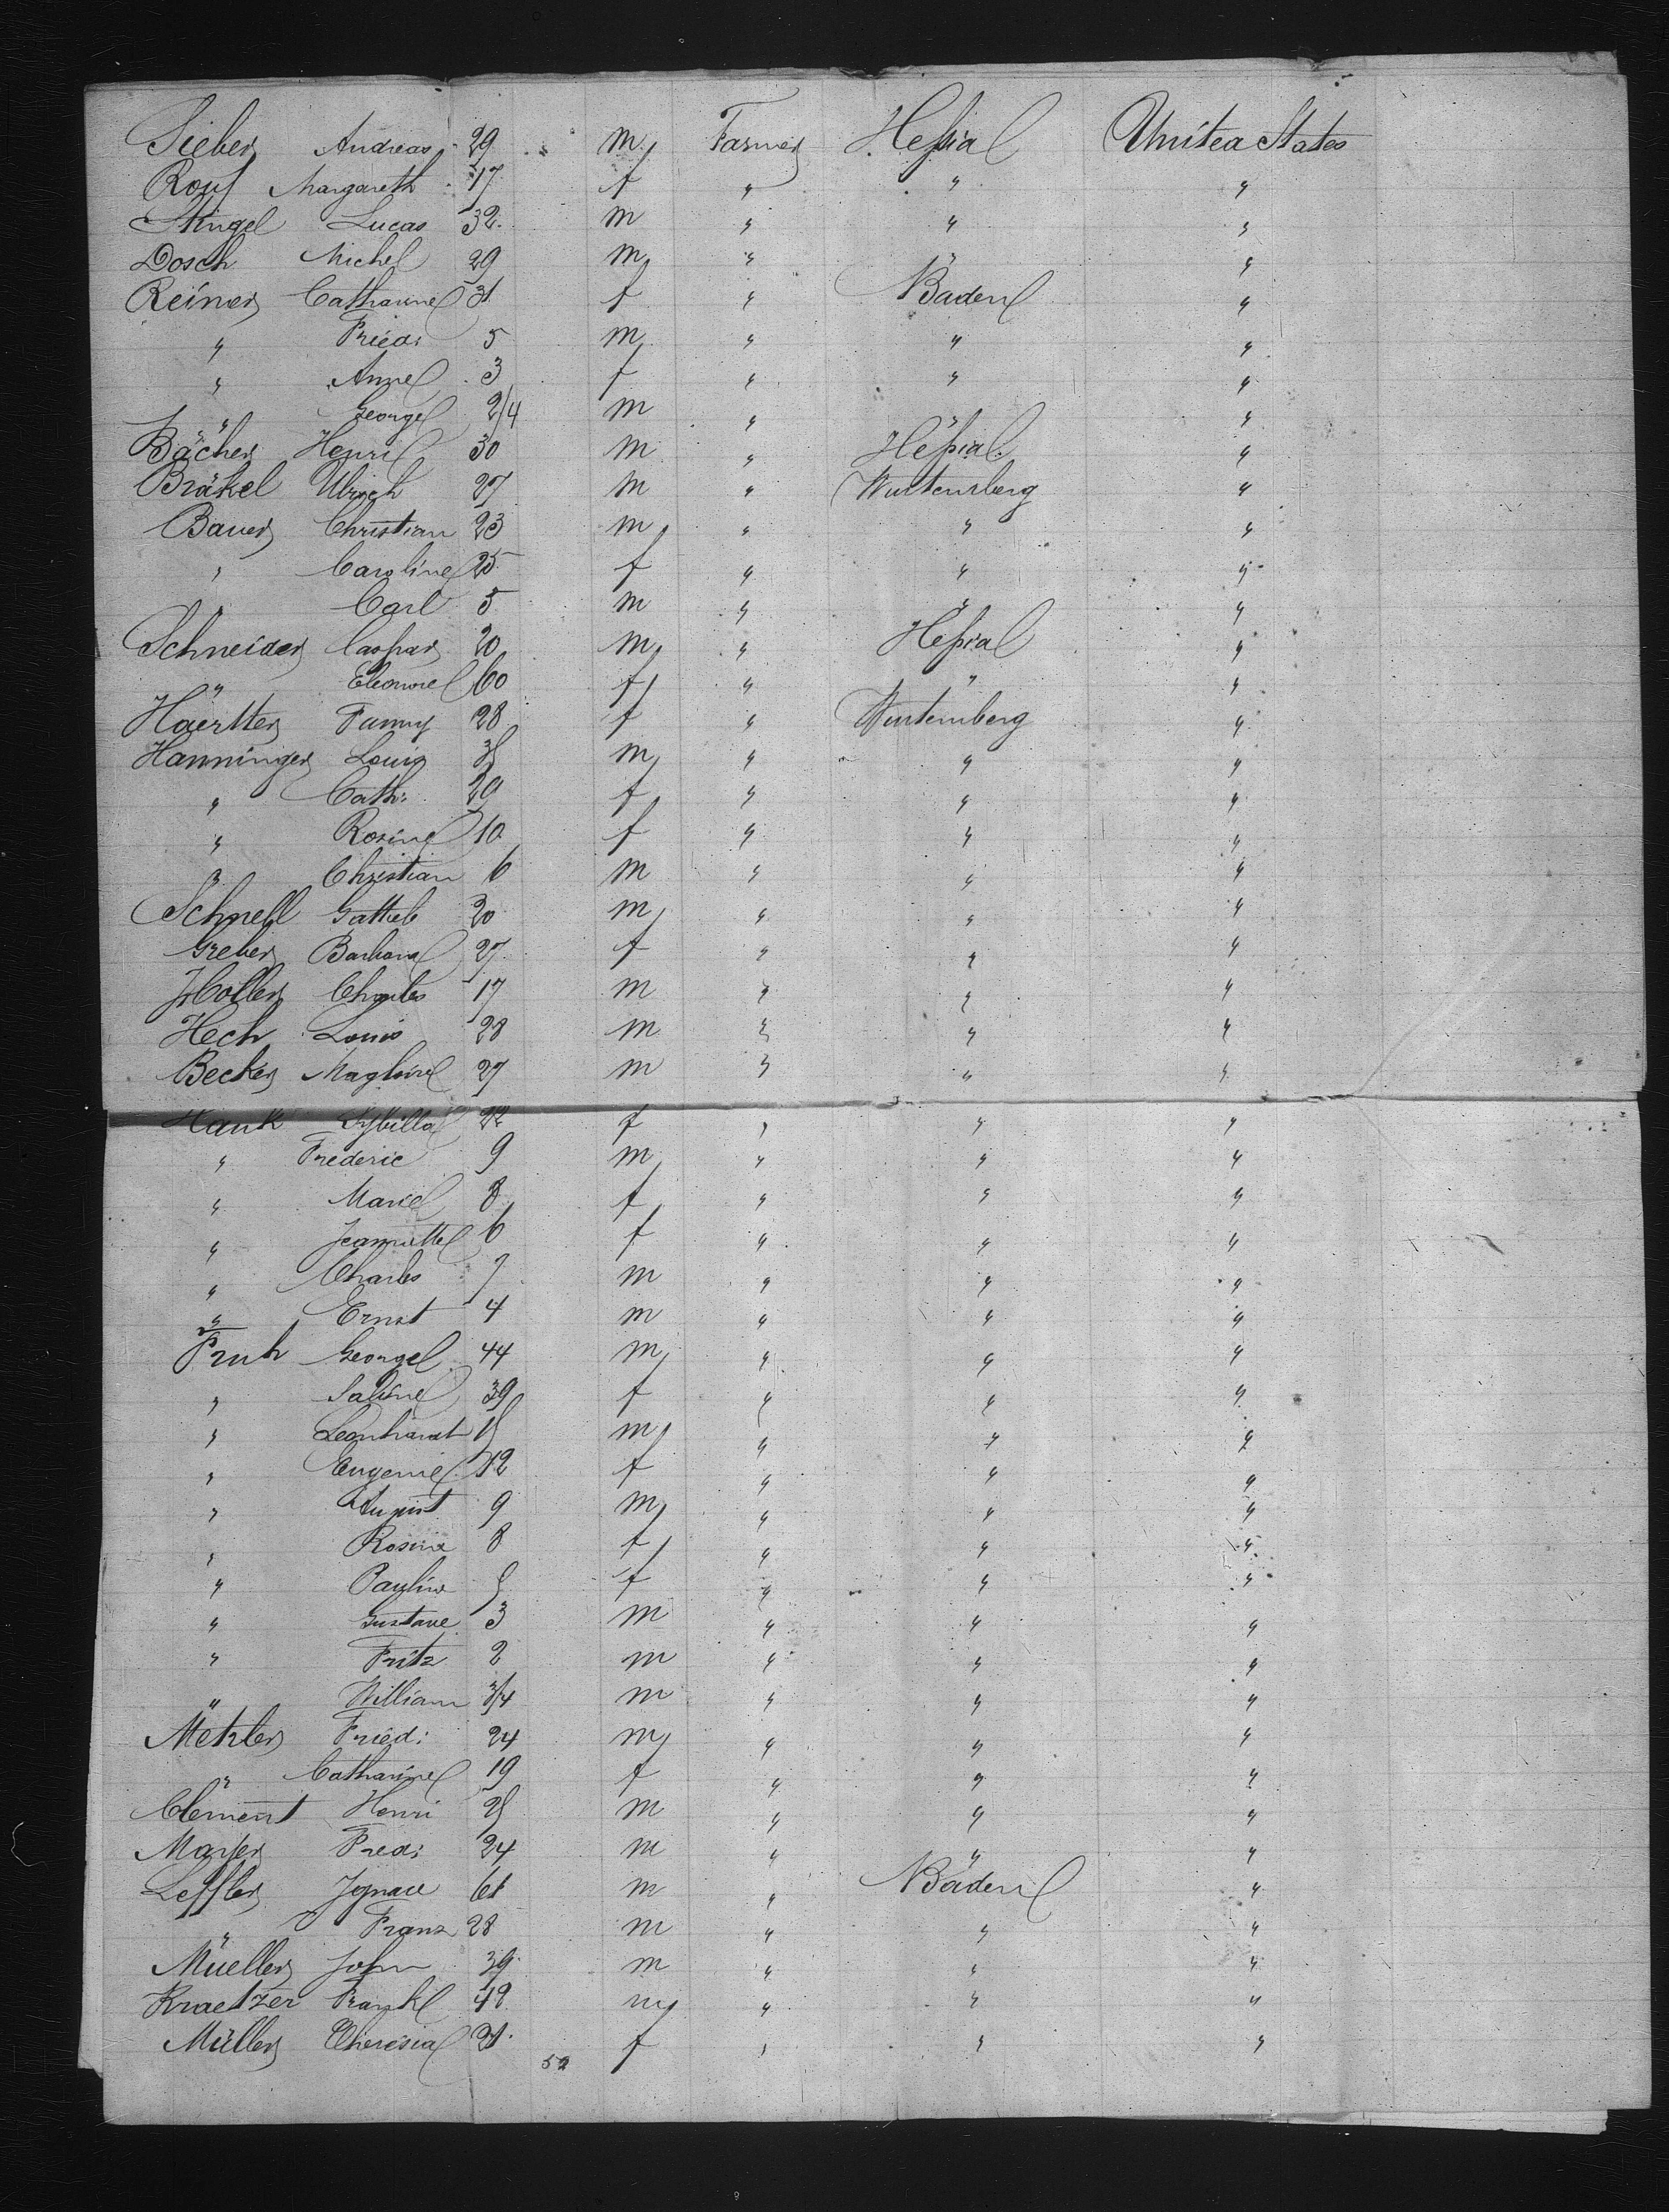 Sieber Andreas 29 m Farmer Heſsia United States
Rouf Margareth 17 f " " "
Stingel Lucas 32 m " " "
Dosch Michel 29 m " " "
Reiner Catharine 31 f " Baden "
" Fried: 5 m " " "
" Anne 3 f " " "
" George 2/4 m " " "
Bächer Henri 30 m " Heſsia "
Bräkel Ulrich 27 m " Wurtemberg "
Bauer Christian 23 m " " "
" Caroline 25 f " " "
" Carl 5 m " " "
Schneider Caspar 20 m " Heſsia "
" Eleonore 60 f " " "
Haertter Fanny 28 f " Wurtemberg "
Hanninger Louis 35 m " " "
" Cath: 29 f " " "
" Rosine 10 f " " "
" Christian 6 m " " "
Schnell Gottlieb 20 m " " "
Greber Barbara 27 f " " "
Holler Charles 17 m " " "
Hech Louis 28 m " " "
Becker Magloire 27 m " " "
Hauk Sybilla 22 f " " "
" Frederic 9 m " " "
" Marie 8 f " " "
" Jeannette 6 f " " "
" Charles 7 m " " "
" Ernst 4 m " " "
Fruh George 44 m " " "
" Sabine 39 f " " "
" Leonhardt 15 m " " "
" Eugenie 12 f " " "
" August 9 m " " "
" Rosine 8 f " " "
" Pauline 5 f " " "
" Gustave 3 m " " "
" Fritz 2 m " " "
" William 3/4 m " " "
Metzler Fried: 24 m " " "
" Catharine 19 f " " "
Clement Henri 25 m " " "
Mayer Fred: 24 m " " "
Leffler Ignace 61 m " Baden "
" Franz 28 m " " "
Mueller John 39 m " " "
Kraetzer Frank 49 m " " "
Müller Theresia 21 f " " "
50